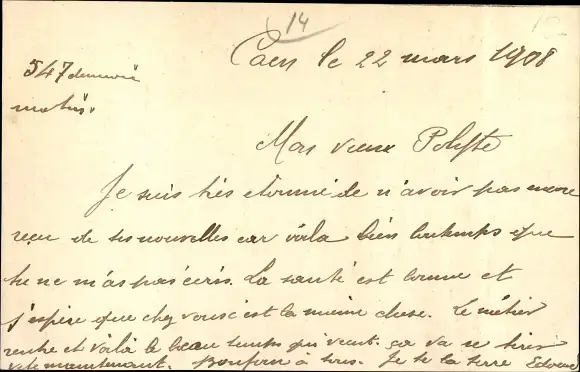 14
Caen le 22 mars 1908
547 demain
matin.
Mon vieux Polyte
Je suis très étonné de n'avoir pas encore
reçu de tes nouvelles car voila bien lontemps que
tu ne m'as pas écris. La santé est bonne et
j'espère que chez vous c'est la même chose. Le métier
rentre et voilà le beau temps qui vient. ça va se tirer
vite maintenant. à tous. Je te la serre